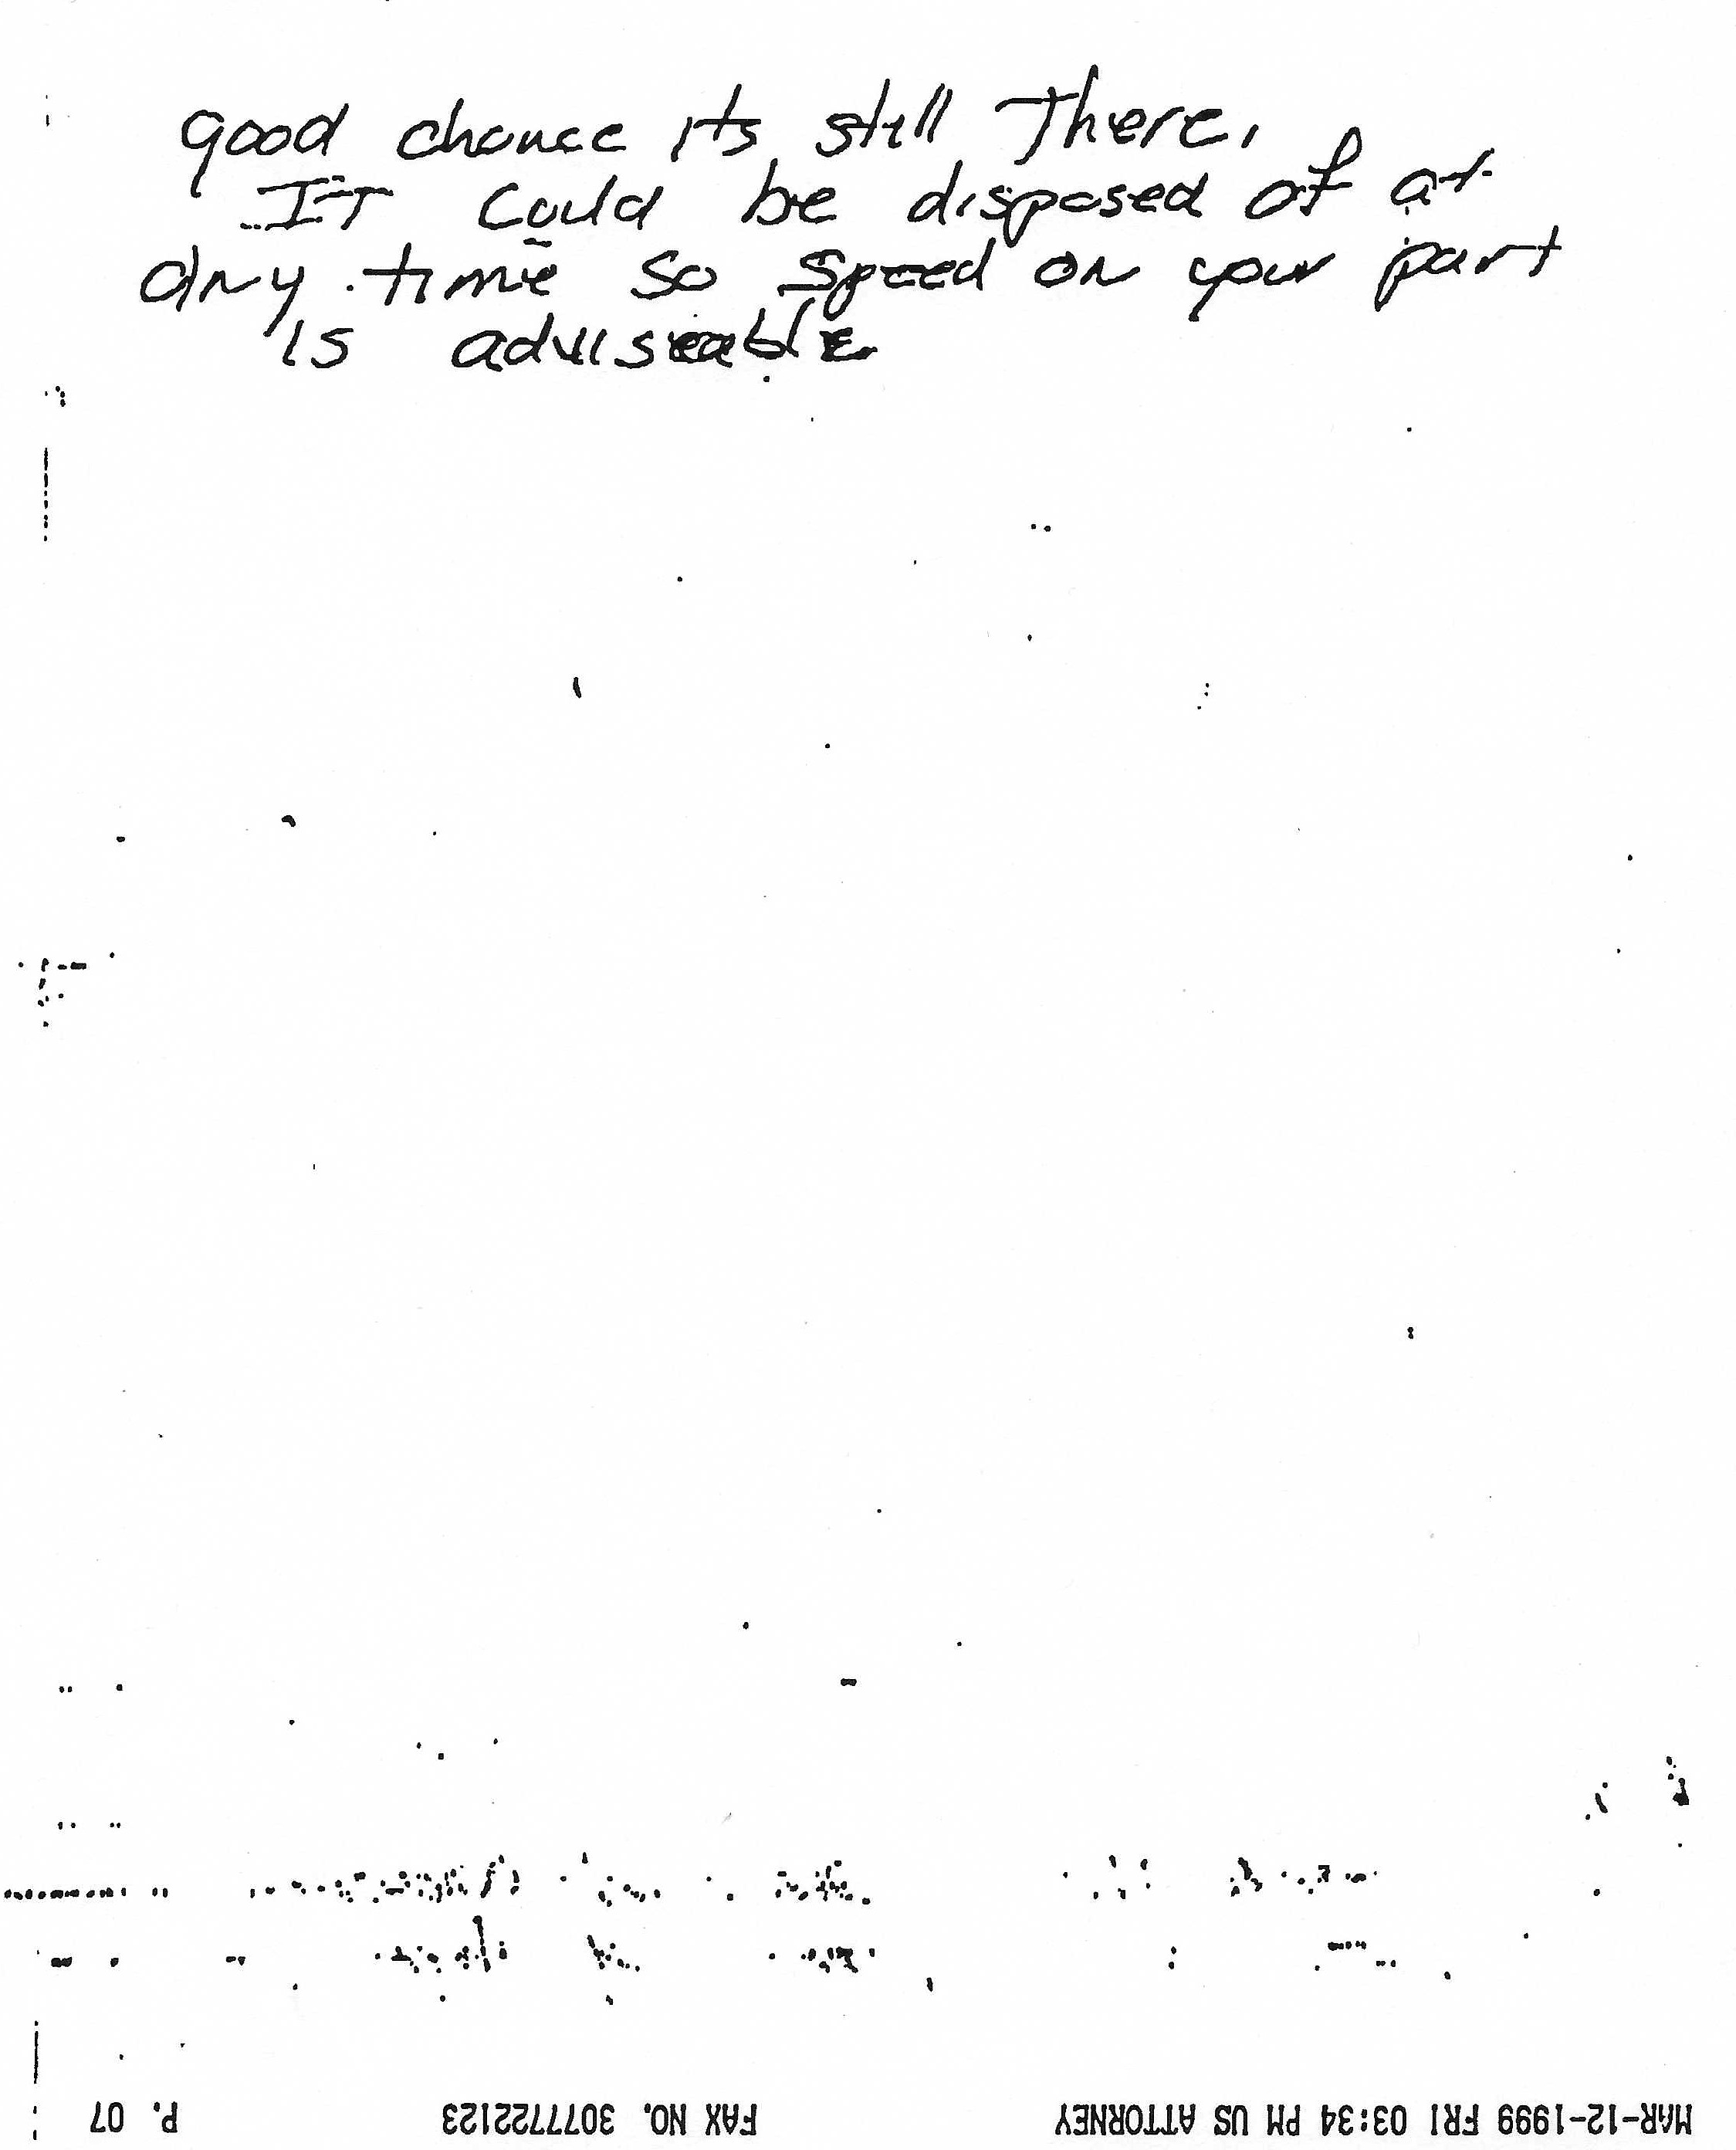 good chance its still There.
IT Could be disposed of at
any time so speed on your part
is adviseable
MAR-12-1999 FRI 03:34 PM US ATTORNEY FAX NO. 3077722123 P. 07